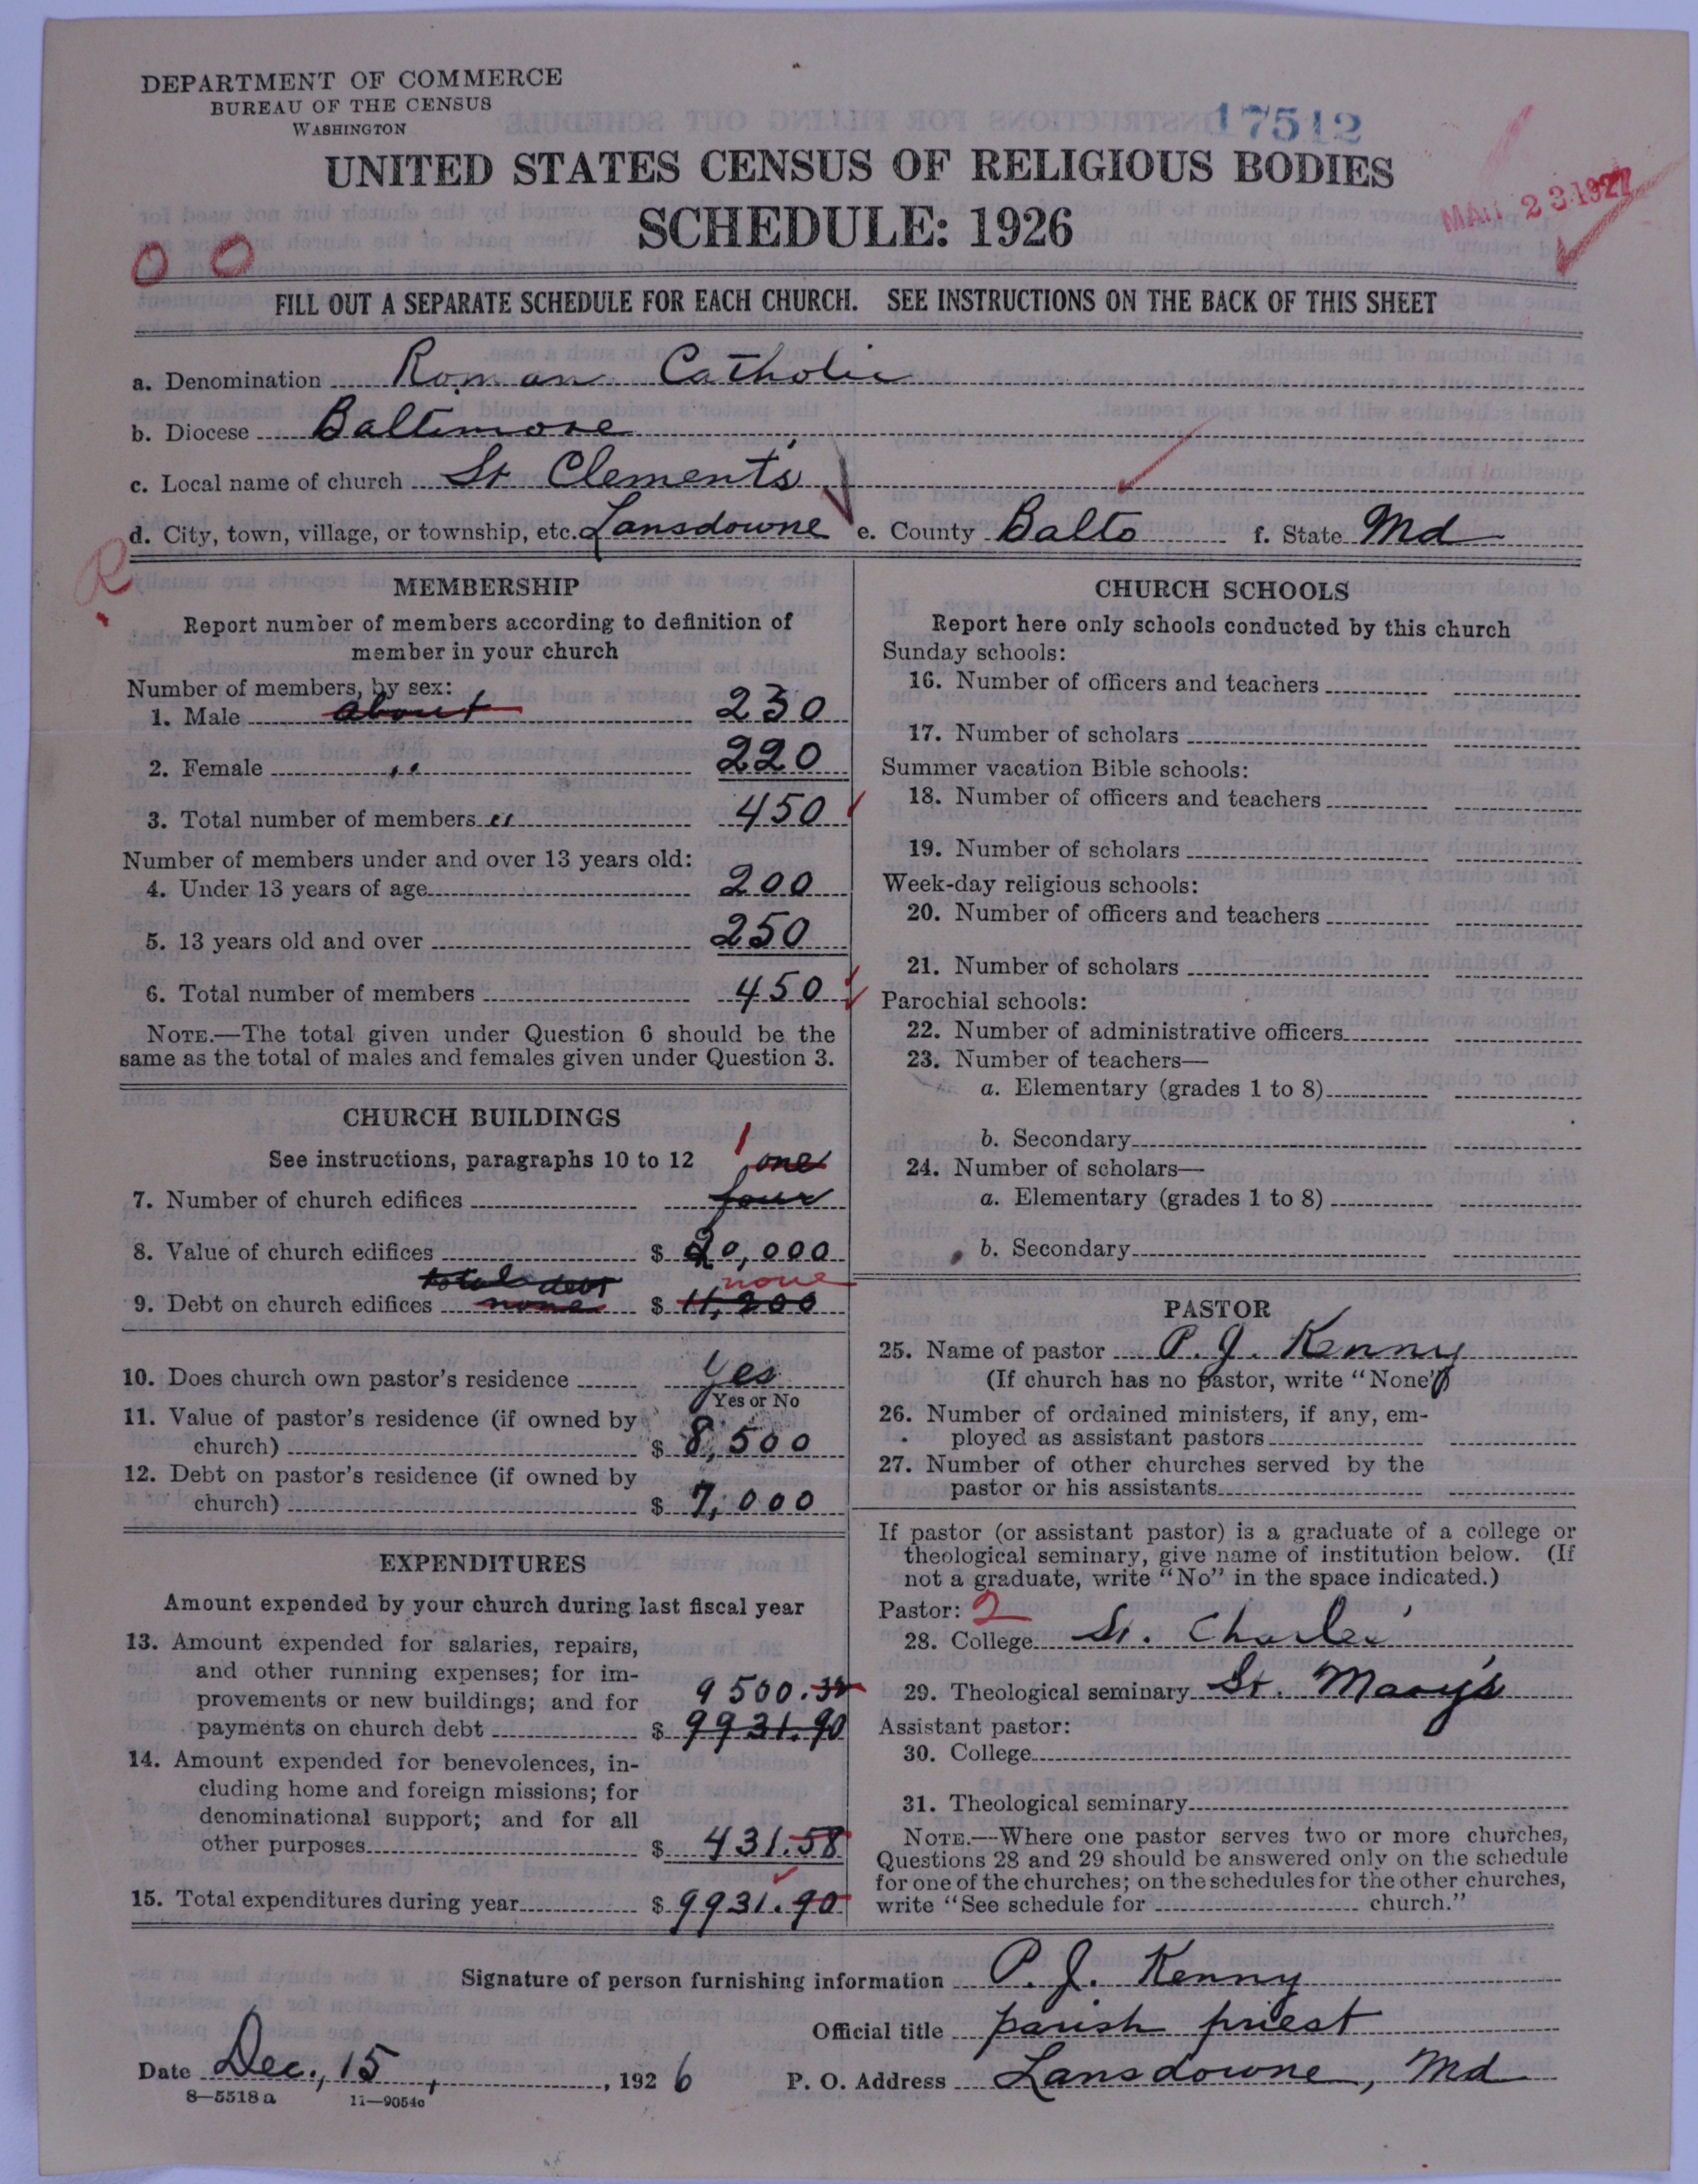 DEPARTMENT OF COMMERCE
BUREAU OF THE CENSUS
WASHINGTON
17512
UNITED STATES CENSUS OF RELIGIOUS BODIES
SCHEDULE: 1926
MAR 23 1927
0 0
FILL OUT A SEPARATE SCHEDULE FOR EACH CHURCH. SEE INSTRUCTIONS ON THE BACK OF THIS SHEET
a. Denomination Roman Catholic
b. Diocese Baltimore
c. Local name of church St Clement's
d. City, town, village, or township, etc. Lansdowne e. County Balto f. State Md
R
MEMBERSHIP
Report number of members according to definition of
member in your church
Number of members, by sex:
1. Male about 230
2. Female " 220
3. Total number of members " 450
Number of members under and over 13 years old:
4. Under 13 years of age 200
5. 13 years old and over 250
6. Total number of members 450
NOTE.—The total given under Question 6 should be the
same as the total of males and females given under Question 3.
CHURCH BUILDINGS
See instructions, paragraphs 10 to 12 1 one
7. Number of church edifices four
8. Value of church edifices $ 20,000
total debt none
9. Debt on church edifices none $ 11,200
10. Does church own pastor's residence Yes
Yes or No
11. Value of pastor's residence (if owned by
church) $ 8,500
12. Debt on pastor's residence (if owned by
church) $ 7,000
EXPENDITURES
Amount expended by your church during last fiscal year
13. Amount expended for salaries, repairs,
and other running expenses; for im-
provements or new buildings; and for 9500.32
payments on church debt $ 9931.90
14. Amount expended for benevolences, in-
cluding home and foreign missions; for
denominational support; and for all
other purposes $ 431.58
15. Total expenditures during year $ 9931.90
CHURCH SCHOOLS
Report here only schools conducted by this church
Sunday schools:
16. Number of officers and teachers
17. Number of scholars
Summer vacation Bible schools:
18. Number of officers and teachers
19. Number of scholars
Week-day religious schools:
20. Number of officers and teachers
21. Number of scholars
Parochial schools:
22. Number of administrative officers
23. Number of teachers—
a. Elementary (grades 1 to 8)
b. Secondary
24. Number of scholars—
a. Elementary (grades 1 to 8)
b. Secondary
PASTOR
25. Name of pastor P. J. Kenny
(If church has no pastor, write "None")
26. Number of ordained ministers, if any, em-
ployed as assistant pastors
27. Number of other churches served by the
pastor or his assistants
If pastor (or assistant pastor) is a graduate of a college or
theological seminary, give name of institution below. (If
not a graduate, write "No" in the space indicated.)
Pastor: 2
28. College St. Charles'
29. Theological seminary St. Mary's
Assistant pastor:
30. College
31. Theological seminary
NOTE.—Where one pastor serves two or more churches,
Questions 28 and 29 should be answered only on the schedule
for one of the churches; on the schedules for the other churches,
write "See schedule for church."
Signature of person furnishing information P. J. Kenny
Official title parish priest
Date Dec., 15, 1926 P. O. Address Lansdowne, Md
8—5518a 11—9054c